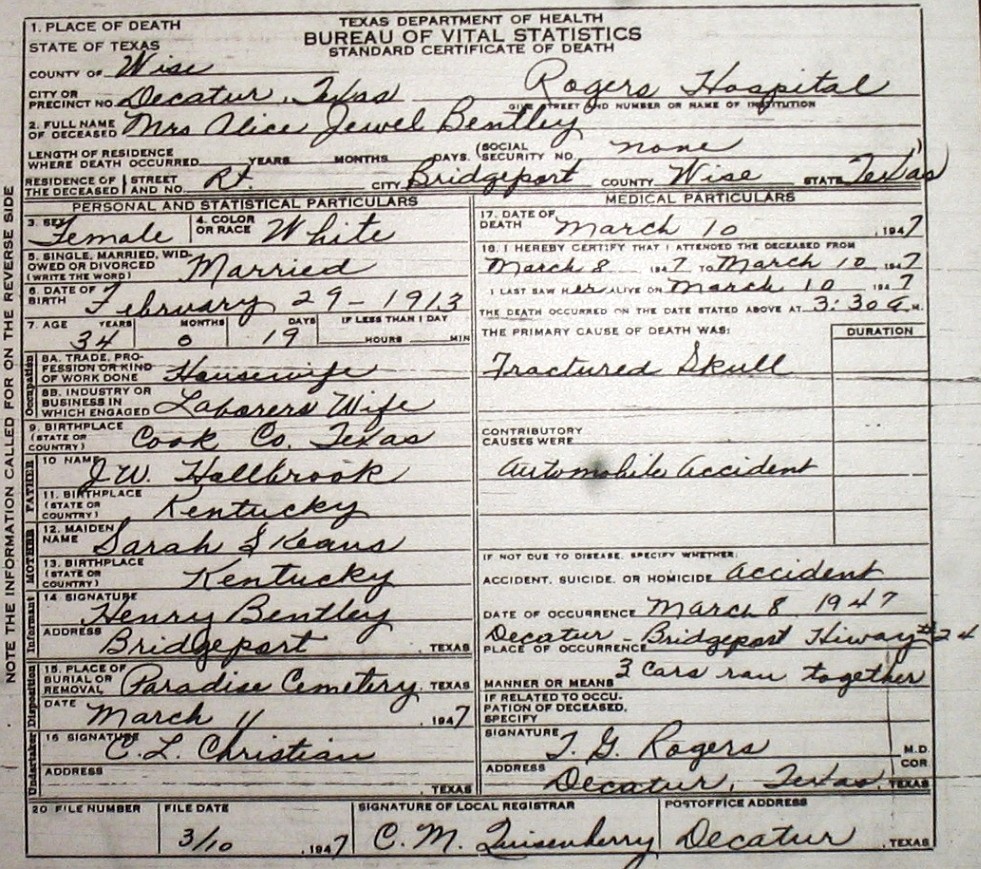 TEXAS DEPARTMENT OF HEALTH
BUREAU OF VITAL STATISTICS
STANDARD CERTIFICATE OF DEATH
1. PLACE OF DEATH
STATE OF TEXAS
COUNTY OF Wise
CITY OR PRECINCT NO. Decatur, Texas Rogers Hospital
GIVE STREET AND NUMBER OR NAME OF INSTITUTION
2. FULL NAME OF DECEASED Mrs Alice Jewel Bentley
LENGTH OF RESIDENCE WHERE DEATH OCCURRED YEARS MONTHS DAYS. (SOCIAL SECURITY NO. none )
RESIDENCE OF THE DECEASED STREET AND NO. Rt. CITY Bridgeport COUNTY Wise STATE Texas
PERSONAL AND STATISTICAL PARTICULARS
3. SEX Female 4. COLOR OR RACE White
5. SINGLE, MARRIED, WIDOWED OR DIVORCED (WRITE THE WORD) Married
6. DATE OF BIRTH February 29-1913
7. AGE YEARS MONTHS DAYS IF LESS THAN 1 DAY
34 0 19 HOURS MIN
Occupation
8A. TRADE, PROFESSION OR KIND OF WORK DONE Housewife
8B. INDUSTRY OR BUSINESS IN WHICH ENGAGED Laborers Wife
9. BIRTHPLACE (STATE OR COUNTRY) Cook Co. Texas
FATHER
10 NAME J.W. Hallbrook
11. BIRTHPLACE (STATE OR COUNTRY) Kentucky
MOTHER
12. MAIDEN NAME Sarah Skeans
13. BIRTHPLACE (STATE OR COUNTRY) Kentucky
Informant
14 SIGNATURE Henry Bentley
ADDRESS Bridgeport , TEXAS
Disposition
15. PLACE OF BURIAL OR REMOVAL Paradise Cemetery, TEXAS
DATE March 11 , 1947
Undertaker
16 SIGNATURE C.L. Christian
ADDRESS , TEXAS
MEDICAL PARTICULARS
17. DATE OF DEATH March 10 , 1947
18. I HEREBY CERTIFY THAT I ATTENDED THE DECEASED FROM
March 8 1947 TO March 10 1947
I LAST SAW HER ALIVE ON March 10 1947
THE DEATH OCCURRED ON THE DATE STATED ABOVE AT 3:30 a. M.
THE PRIMARY CAUSE OF DEATH WAS: DURATION
Fractured Skull
CONTRIBUTORY CAUSES WERE
Automobile Accident
IF NOT DUE TO DISEASE, SPECIFY WHETHER:
ACCIDENT, SUICIDE, OR HOMICIDE accident
DATE OF OCCURRENCE March 8 1947
PLACE OF OCCURRENCE Decatur - Bridgeport Hiway #24
MANNER OR MEANS 3 cars ran together
IF RELATED TO OCCUPATION OF DECEASED, SPECIFY
SIGNATURE T. G. Rogers M.D. COR.
ADDRESS Decatur, Texas, TEXAS
20 FILE NUMBER FILE DATE SIGNATURE OF LOCAL REGISTRAR POSTOFFICE ADDRESS
3/10 , 1947 C. M. Quisenberry Decatur , TEXAS
NOTE THE INFORMATION CALLED FOR ON THE REVERSE SIDE